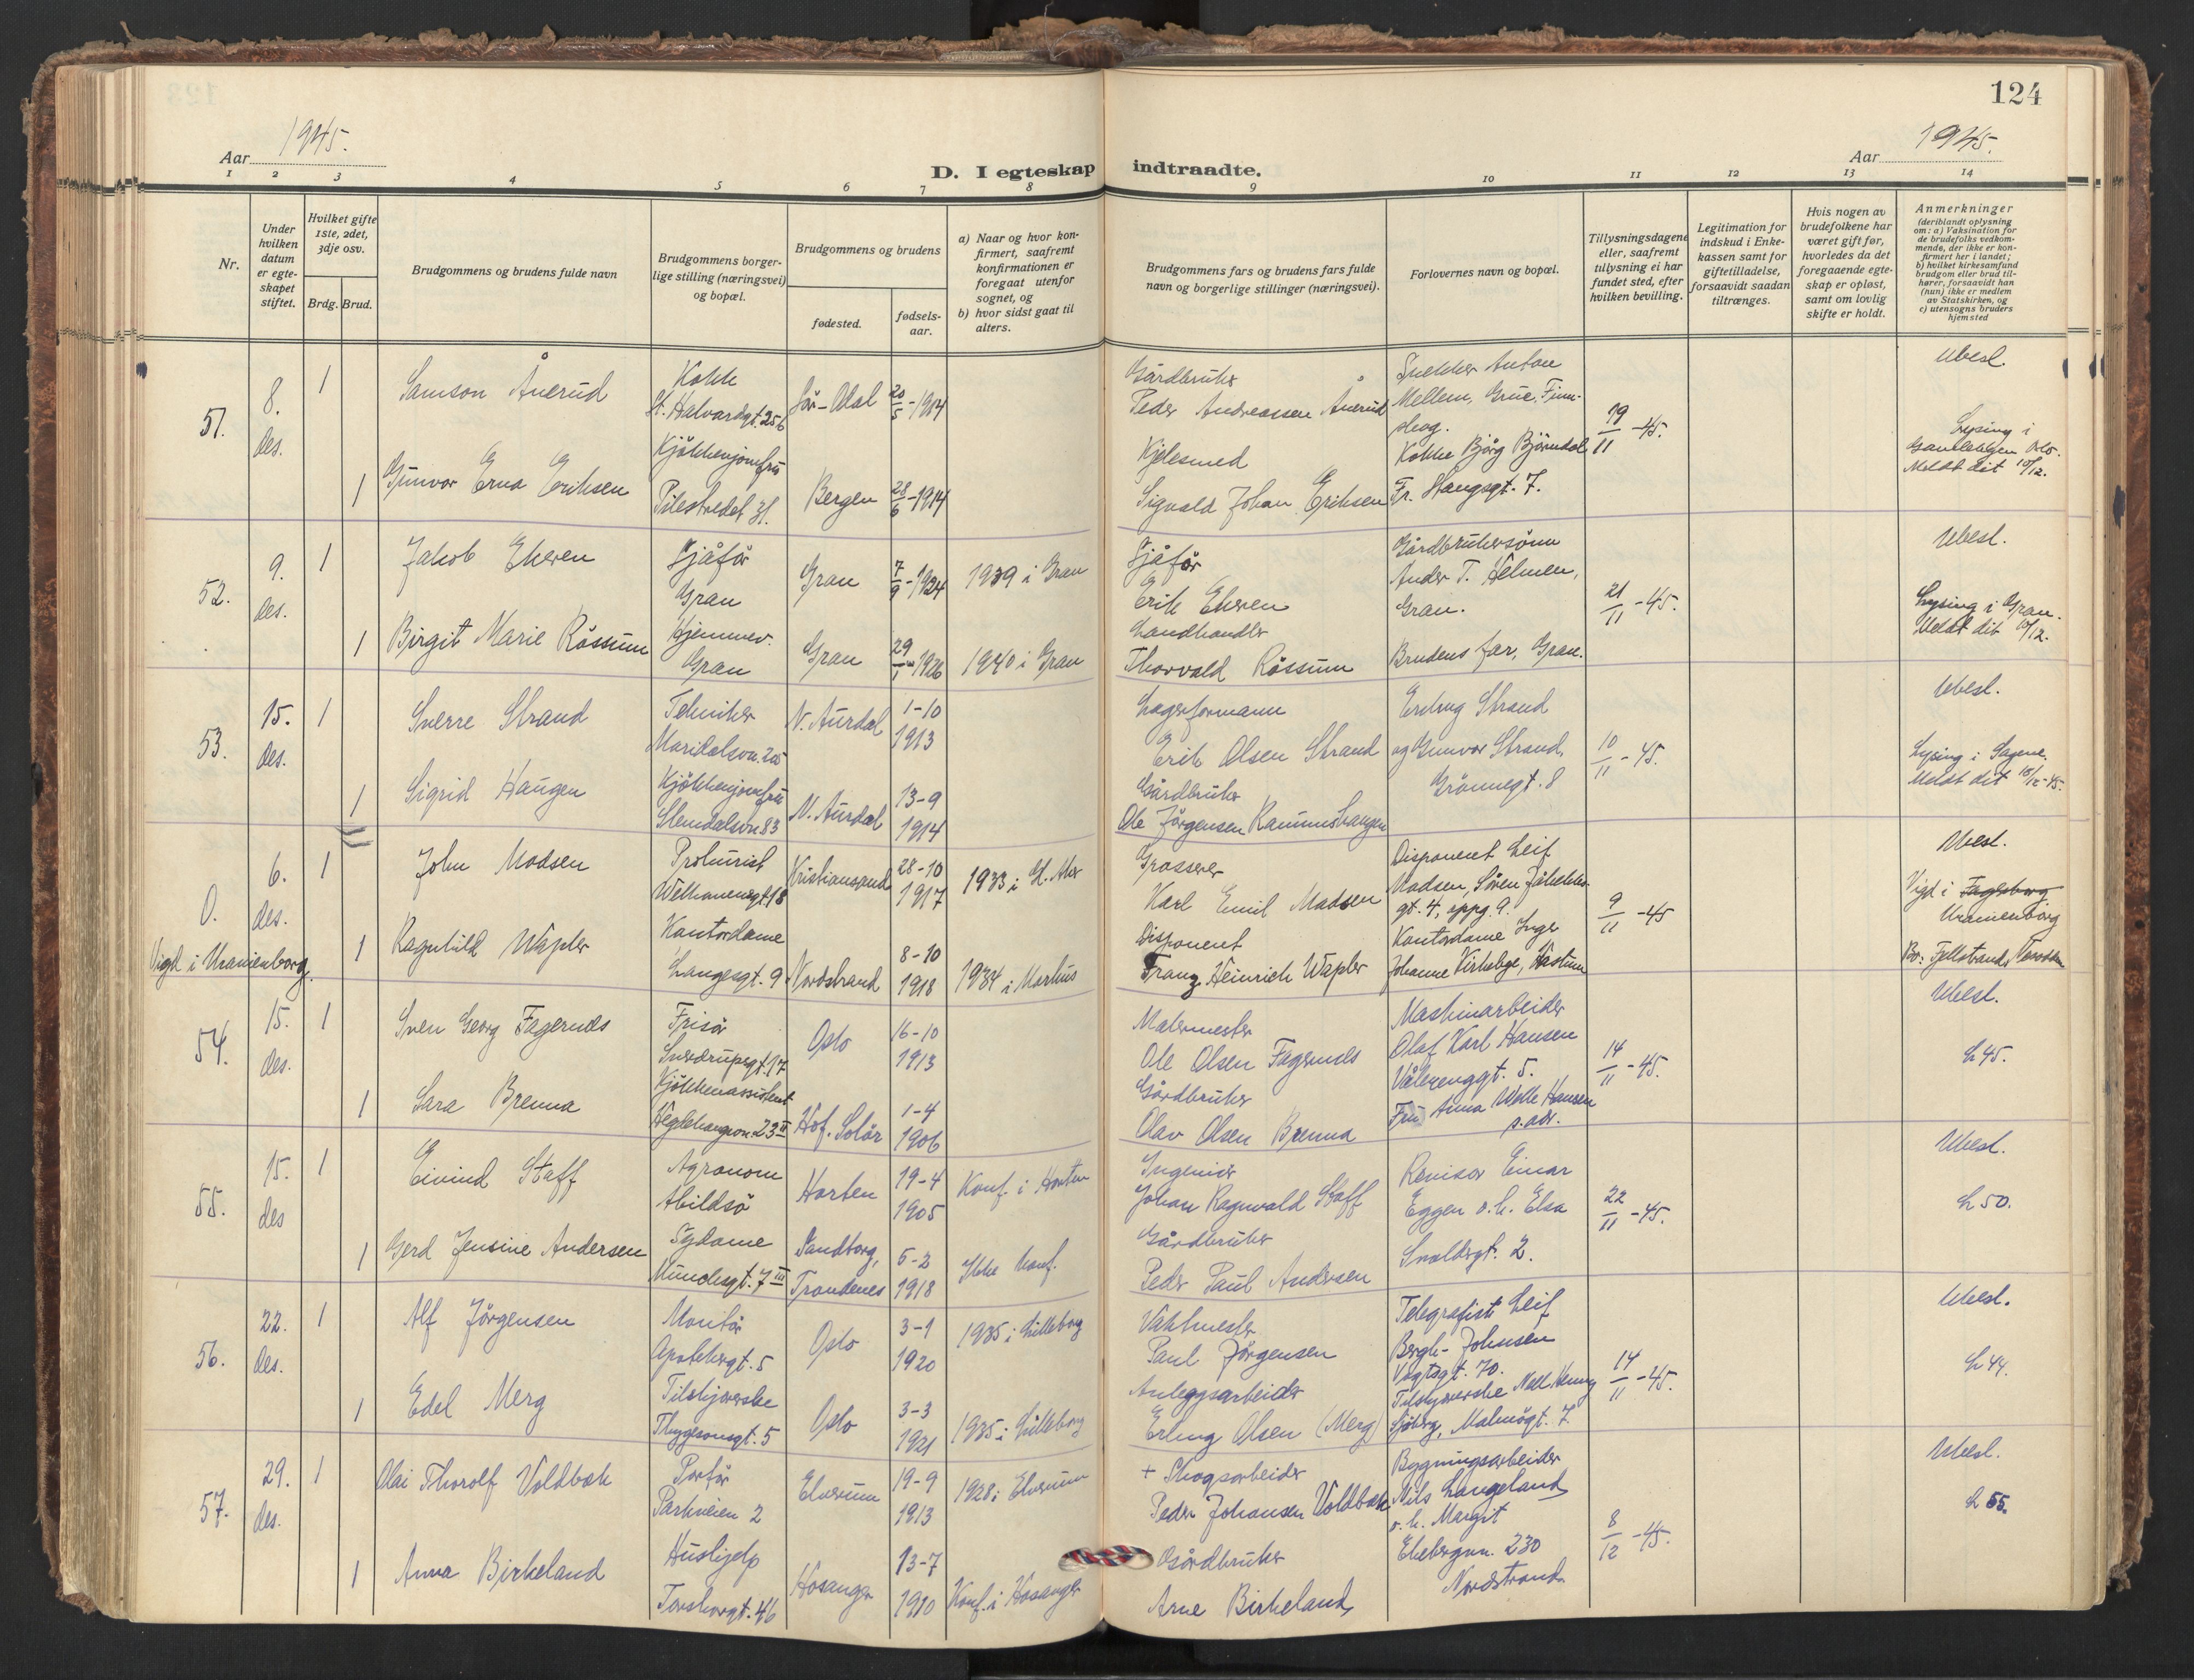 124
Aar 1945.
Aar 1945.
D. I egteskap indtraadte.
1 2 3 4 5 6 7 8 9 10 11 12 13 14
Nr.
Under hvilken datum er egteskapet stiftet.
Hvilket gifte 1ste, 2det, 3dje osv.
Brdg. Brud.
Brudgommens og brudens fulde navn
Brudgommens borgerlige stilling (næringsvei) og bopæl.
Brudgommens og brudens
fødested.
fødselsaar.
a) Naar og hvor konfirmert, saafremt konfirmationen er foregaat utenfor sognet, og
b) hvor sidst gaat til alters.
Brudgommens fars og brudens fars fulde navn og borgerlige stillinger (næringsvei).
Forlovernes navn og bopæl.
Tillysningsdagene eller, saafremt tillysning ei har fundet sted, efter hvilken bevilling.
Legitimation for indskud i Enkekassen samt for giftetilladelse, forsaavidt saadan tiltrænges.
Hvis nogen av brudefolkene har været gift før, hvorledes da det foregaaende egteskap er opløst, samt om lovlig skifte er holdt.
Anmerkninger
(deriblandt oplysning om: a) Vaksination for de brudefolks vedkommende, der ikke er konfirmert her i landet;
b) hvilket kirkesamfund brudgom eller brud tilhører, forsaavidt han (hun) ikke er medlem av Statskirken, og
c) utensogns bruders hjemsted
51.
8. des.
1
Samson Åuerud
Kokk
St. Halvardgt. 25b
Sør-Odal
20/5-1914
Gårdbruker
Peder Andreassen Åuerud
Snekker Anton
Mellem, Grue Finnskog.
19/11-45.
Ubesl.
1
Gunvor Erna Eriksen
Kjökkenjomfru
Pilestredet 31.
Bergen
28/6-1914
Kjelesmed
Sigvald Johan Eriksen
Kokke Bjørg Björndal
Fr. Stangsgt. 7.
Lysing i
Gamlebyen Oslo.
Meldt dit 10/12.
52.
9. des.
1
Jakob Ekeren
Sjåför
Gran
Gran
7/9-1924
1939 i Gran
Sjåför
Erik Ekeren
Gårdbrukersönn
Ander T. Helmen,
Gran.
21/11-45.
Ubesl.
1
Birgit Marie Rössum
Hjemmev.
Gran
Gran
29/1-1926
1940 i Gran
Landhandler
Thorvald Rössum
Brudens far, Gran.
Lysing i Gran.
Meldt dit 10/12.
53.
15. des.
1
Sverre Strand
Tekniker
Maridalsvn. 205
N. Aurdal
1-10
1913
Lagerformann
Erik Olsen Strand
Erling Strand
og Gunvor Strand,
Grönnegt. 8
10/11-45.
Ubesl.
1
Sigrid Haugen
Kjökkenjomfru
Slemdalsvn 83
N. Aurdal
13-9
1914
Gårdbruker
Ole Jörgensen Ranumshaugen
Lysing i Sagene.
Meldt dit 18/12-45.
0.
Vigd i Uranienborg.
6. des.
1
John Madsen
Prokurist
Welhavensgt. 18
Kristiansand
28-10
1917
1933 i V. Aker
Grosserer
Karl Emil Madsen
Disponent Leif
Madsen, Sören Jåbekks
gt. 4, oppg. 9.
9/11-45
Ubesl.
1
Ragnhild Wapler
Kontordame
Langesgt. 9
Nordstrand
8-10
1918
1934 i Markus
Disponent
Franz Heinrich Wapler
Kontordame Inger
Johanne Kirkebye, Hastum
Vigd i Fagerborg
Uranienborg
Bo: Fjellstrand, Nesodden
54.
15. des.
1
Sven Georg Fagernes
Frisör
Sverdrupsgt. 17
Oslo
16-10
1913
Malermester
Ole Olsen Fagernes
Maskinarbeider
Olaf Karl Hansen
Vålerenggt. 5.
14/11-45.
Ubesl.
1
Sara Brenna
Kjökkenassistent
Hegdehaugsvn. 23 II
Hof. Solör
1-4
1906
Gårdbruker
Olav Olsen Brenna
Fru Anna Welle Hansen
s. adr.
L 45.
55.
15. des
1
Eivind Staff
Agronom
Abildsö
Horten
19-4
1905
Konf. i Horten
Ingeniör
Johan Ragnvald Staff
Revisor Einar
Eggen o.h. Elsa
Snoldsgt. 2.
22/11-45.
Ubesl.
1
Gerd Jensine Andersen
Sydame
Munchsgt. 7 III
Sandtorg, Trondenes
5-2
1918
Ikke konf.
Gårdbruker
Peder Paul Andersen
L 50.
56.
22. des.
1
Alf Jörgensen
Montör
Apotekergt. 5
Oslo
3-1
1920
1935 i Lilleborg
Vaktmester
Paul Jörgensen
Telegrafist Leif
Bergh-Johnsen
Vogtsgt. 70.
14/11-45.
Ubesl.
1
Edel Merg
Tilskjærerske
Thygesonsgt. 5
Oslo
3-3
1921
1935 i Lilleborg
Anleggsarbeider
Erling Olsen (Merg)
Tilskjærerske Nell Henny
Sjöberg, Malmögt. 7.
L 44.
57.
29. des.
1
Olai Thorolf Voldbæk
Portör
Parkveien 2
Elverum
19-9
1913
1928 i Elverum
+ Skogsarbeider
Peder Johansen Voldbæk
Bygningsarbeider
Nils Langeland
o.h. Margit
Ekebergvn. 230
Nordstrand.
8/12-45.
Ubesl.
1
Anna Birkeland
Hushjelp
Torshovgt. 46
Hosanger
13-7
1910
Konf. i Hosanger
Gårdbruker
Arne Birkeland
L 55.